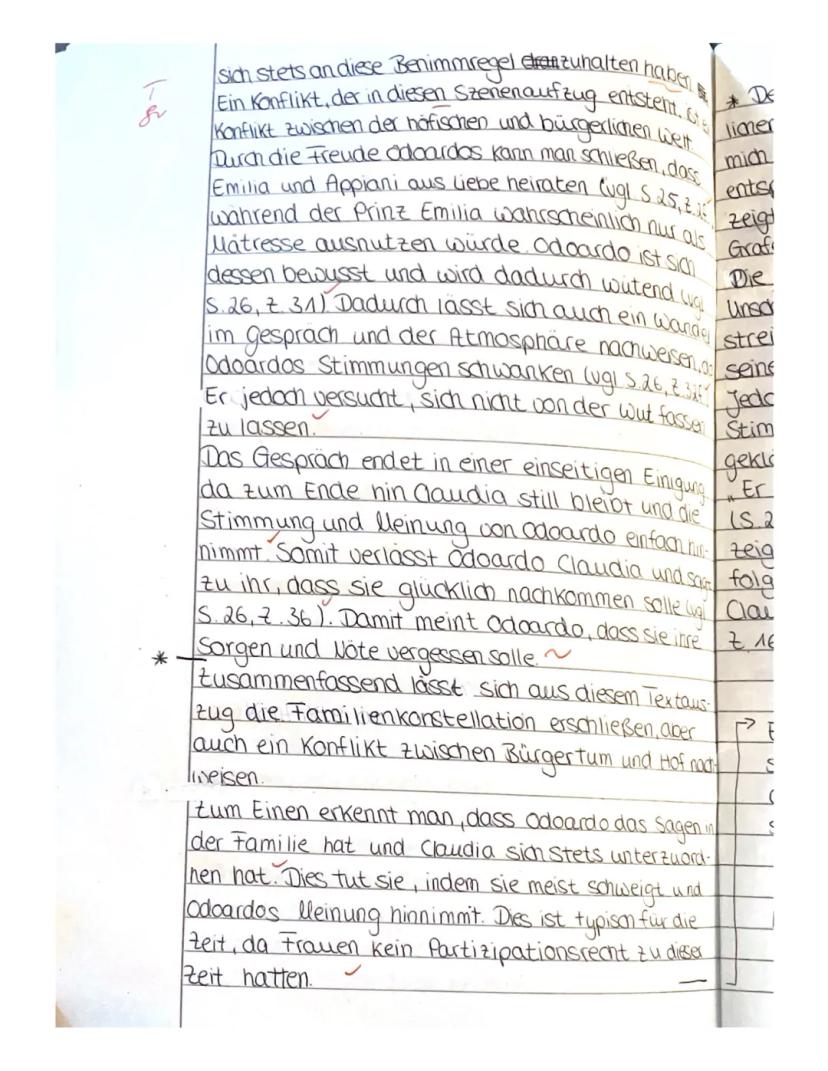 T
gr
sich stets an diese Benimmregel zuhalten haben
Ein Konflikt, der in diesen Szenenaufzug entsteht, ist
Konflikt zwischen der höfischen und bürgerlichen Welt.
Durch die Freude Odoardos kann man schließen, dass
Emilia und Appiani aus Liebe heiraten (vgl S. 25, Z.
während der Prinz Emilia wahrscheinlich nur als
Mätresse ausnutzen würde. Odoardo ist sich
dessen bewusst und wird dadurch wütend (vgl
S. 26, Z. 31). Dadurch lässt sich auch ein Wandel
im Gespräch und der Atmosphäre nachweisen, da
Odoardos Stimmungen schwanken (vgl S. 26, Z. 32f)
Er jedoch versucht, sich nicht von der Wut fassen
zu lassen.
Das Gespräch endet in einer einseitigen Einigung
da zum Ende hin Claudia still bleibt und die
Stimmung und Meinung von Odoardo einfach hin-
nimmt. Somit verlässt Odoardo Claudia und sagt
zu ihr, dass sie glücklich nachkommen solle (vgl
S. 26, Z. 36). Damit meint Odoardo, dass sie ihre
* Sorgen und Nöte vergessen solle.
Zusammenfassend lässt sich aus diesem Textaus-
zug die Familienkonstellation erschließen, aber
auch ein Konflikt zwischen Bürgertum und Hof nach-
weisen.
Zum Einen erkennt man, dass Odoardo das Sagen in
der Familie hat und Claudia sich stets unterzuord-
nen hat. Dies tut sie, indem sie meist schweigt und
Odoardos Meinung hinnimmt. Dies ist typisch für die
Zeit, da Frauen kein Partizipationsrecht zu dieser
Zeit hatten.
* De
licher
mich
zeigt
Graf
Die
Unsch
strei
seine
Jedo
Stim
"Er
(S. 2
zeig
folg
Clau
Z. 16